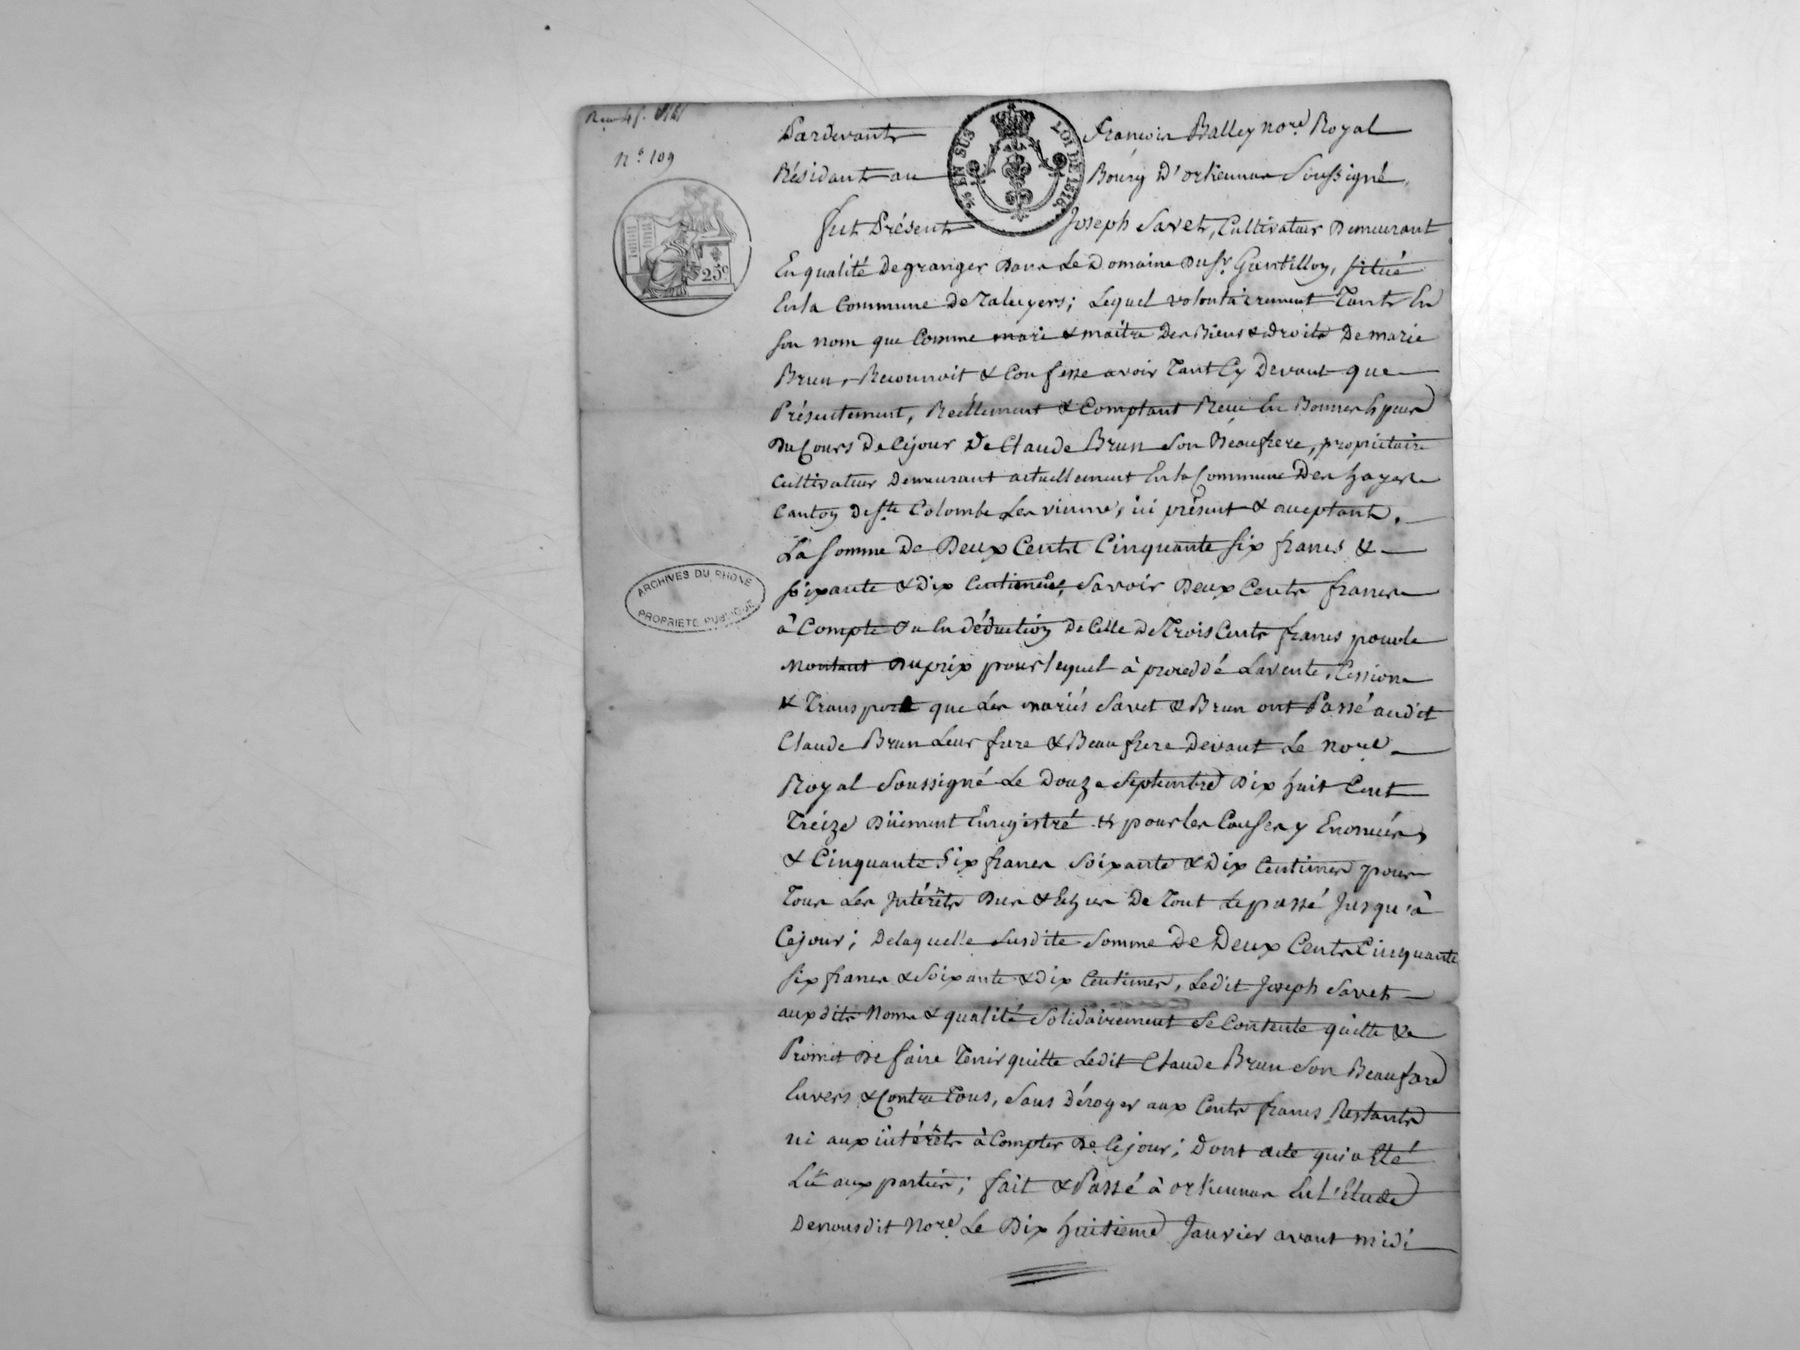 N.° 109
25 EN SUS
LOI DE 1816
25 c
Pardevant François Balley no.re Royal
Résidant au Bourg D'orliennas Soussigné,
fut Présent Joseph Savet, Cultivateur Demeurant
En qualité de granger Dans Le Domaine du Sr. Gantillon, situé
En la Commune de Taluyers; Lequel volontairement Tant En
son nom que Comme mari & maître Des Biens & droits De marie
Brun, Reconnoit & Confesse avoir Tant Cy Devant que
Présentement, Réellement & Comptant Reçu En Bonnes Espèces
Du Cours De Cejour De Claude Brun Son Beaufrere, propriétaire
Cultivateur Demeurant actuellement En la Commune Des hayes
Canton de Ste Colombe Les vienne, ici présent & acceptant,
La Somme De Deux Cents Cinquante six francs &
soixante & Dix Centimes, Savoir Deux Cents francs
à Compte Ou En déduction De Celle De Trois Cents francs pour le
Montant Du prix pour lequel à proceddé La vente, Cession
& Transport que Les mariés Savet & Brun ont Passé audit
Claude Brun Leur frere & Beaufrere Devant Le no.re
Royal Soussigné Le Douze Septembre Dix huit Cent
Treize Düement Enregistré & pour les Causes y Enoncées,
& Cinquante Six francs Soixante & Dix Centimes pour
Tous Les Intérêts Dus & Echus De Tout Le passé Jusqu'à
Cejour; De laquelle Susdite Somme De Deux Cents Cinquante
six francs & Soixante & dix Centimes, Ledit Joseph Savet
auxdits Noms & qualité Solidairement Se Contente quitte &
Promet De faire Tenir quitte Ledit Claude Brun Son Beaufrere
Envers & Contre Tous, Sans Déroger aux Cents francs Restants
ni aux intérêts à Compter De Cejour; Dont acte qui a Eté
Lû aux parties; fait & Passé à orliennas En L'Etude
De nousdit No.re Le Dix huitieme Janvier avant midi
ARCHIVES DU RHONE
PROPRIETE PUBLIQUE